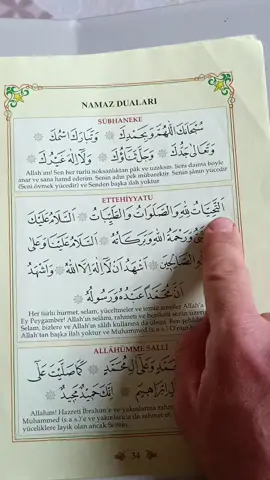 NAMAZ DUALARI
SÜBHANEKE
سُبْحَانَكَ اللّٰهُمَّ وَبِحَمْدِكَ ۞ وَتَبَارَكَ اسْمُكَ ۞
وَتَعَالٰى جَدُّكَ ۞ وَجَلَّ ثَنَاؤُكَ ۞ وَلَا اِلٰهَ غَيْرُكَ ۞
Allah'ım! Sen her türlü noksanlıktan pâk ve uzaksın. Seni daima böyle
anar ve sana hamd ederim. Senin adın pek mübarektir. Senin şânın yücedir
(Seni övmek yücedir) ve Senden başka ilah yoktur.
ETTEHİYYATU
اَلتَّحِيَّاتُ لِلّٰهِ وَالصَّلَوَاتُ وَالطَّيِّبَاتُ ۞ اَلسَّلَامُ عَلَيْكَ
وَرَحْمَةُ اللّٰهِ وَبَرَكَاتُهُ ۞ اَلسَّلَامُ عَلَيْنَا وَعَلٰى
الصَّالِحِينَ ۞ اَشْهَدُ اَنْ لَا اِلٰهَ اِلَّا اللّٰهُ ۞ وَاَشْهَدُ
اَنَّ مُحَمَّدًا عَبْدُهُ وَرَسُولُهُ ۞
Her türlü hürmet, selam,
Ey Peygamber! Allah'ın selâmı, rahmeti ve
Selam, bizlere ve Allah'ın sâlih kullarına da olsun.
Allah'tan başka ilah yoktur ve Muhammed (s.a.s.) O'nun
ALLÂHÜMME SALLİ
وَعَلٰى اٰلِ مُحَمَّدٍ ۞ كَمَا صَلَّيْتَ عَلٰى
اِبْرٰهِيمَ ۞ اِنَّكَ حَمِيدٌ مَجِيدٌ ۞
Allahım! Hazreti İbrahim'e ve yakınlarına
Muhammed (s.a.s.)'e ve yakınlarına da rahmet et.
yüceliklere layık olan ancak Sensin.
34